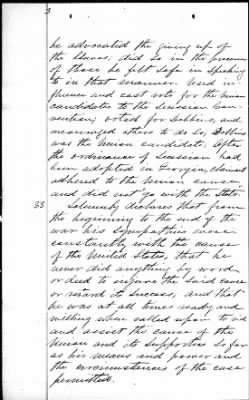 3
he advocated the giving up of
the slaves, did so in the presence
of those he felt safe in speaking
to in that manner. Used in-
fluence and cast vote for the Union
candidates to the Secession Con-
vention; voted for Dobbins, and
encouraged others to do so, Dobbins
was the Union candidate. After
the ordinance of Secession had
been adopted in Georgia, claimant
adhered to the Union cause
and did not go with the State.
33 Solemnly declares that from
the beginning to the end of the
war his sympathies were
constantly with the cause
of the United States, that he
never did anything by word
or deed to injure the said cause
or retard its success, and that
he was at all times ready and
willing when called upon to aid
and assist the cause of the
Union and its supporters so far
as his means and power and
the circumstances of the case
permitted.